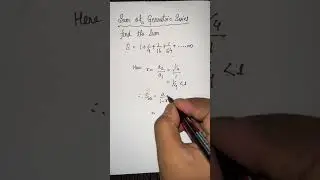 Here
Sum of Geometric Series
find the Sum
S = 1 + 1/4 + 1/16 + 1/64 + ......∞
Here r = a₂/a₁ = 1/4 / 1
= 1/4 < 1
∴ S∞ = a/1-
=